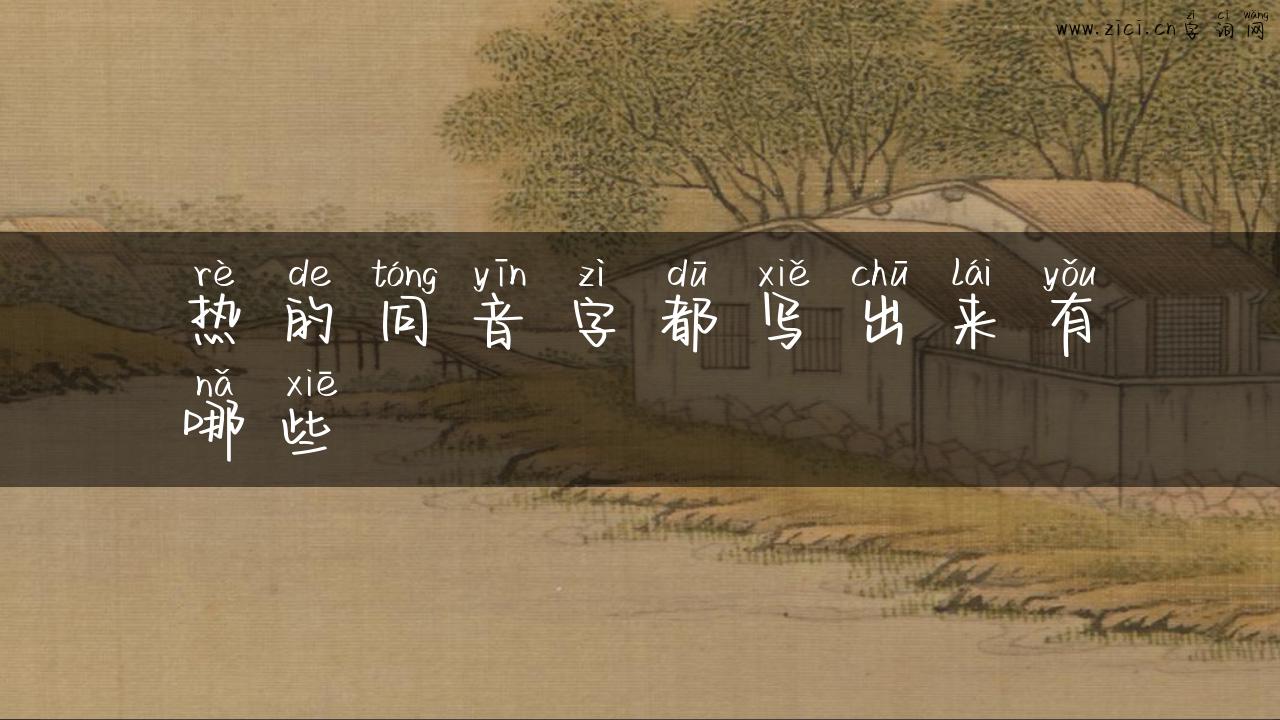 zì cí wǎng
www.zici.cn 字词网
rè de tóng yīn zì dū xiě chū lái yǒu
热的同音字都写出来有
nǎ xiē
哪些